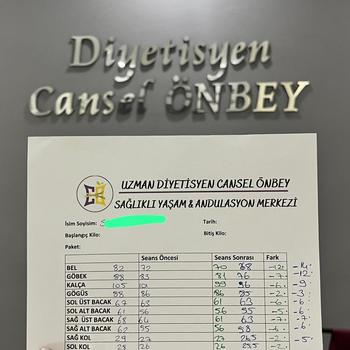 Diyetisyen
Cansel ÖNBEY
UZMAN DİYETİSYEN CANSEL ÖNBEY
SAĞLIKLI YAŞAM & ANDULASYON MERKEZİ
İsim Soyisim: S
Tarih:
Başlangıç Kilo:
Bitiş Kilo:
Paket:
Seans Öncesi Seans Sonrası Fark
BEL 82 72 70 68 -12 -14
GÖBEK 88 83 81 76 -7 -12
KALÇA 105 101 99 96 -6 -9
GÖĞÜS 88 86 86 85 -2 -3
SOL ÜST BACAK 67 63 61 63 -6
SOL ALT BACAK 61 56 56 55 -5 -6
SAĞ ÜST BACAK 68 64 61 63 -7
SAĞ ALT BACAK 62 55 56 58 -6
SAĞ KOL 29 27 27 26,5 -2
SOL KOL 28 26 26